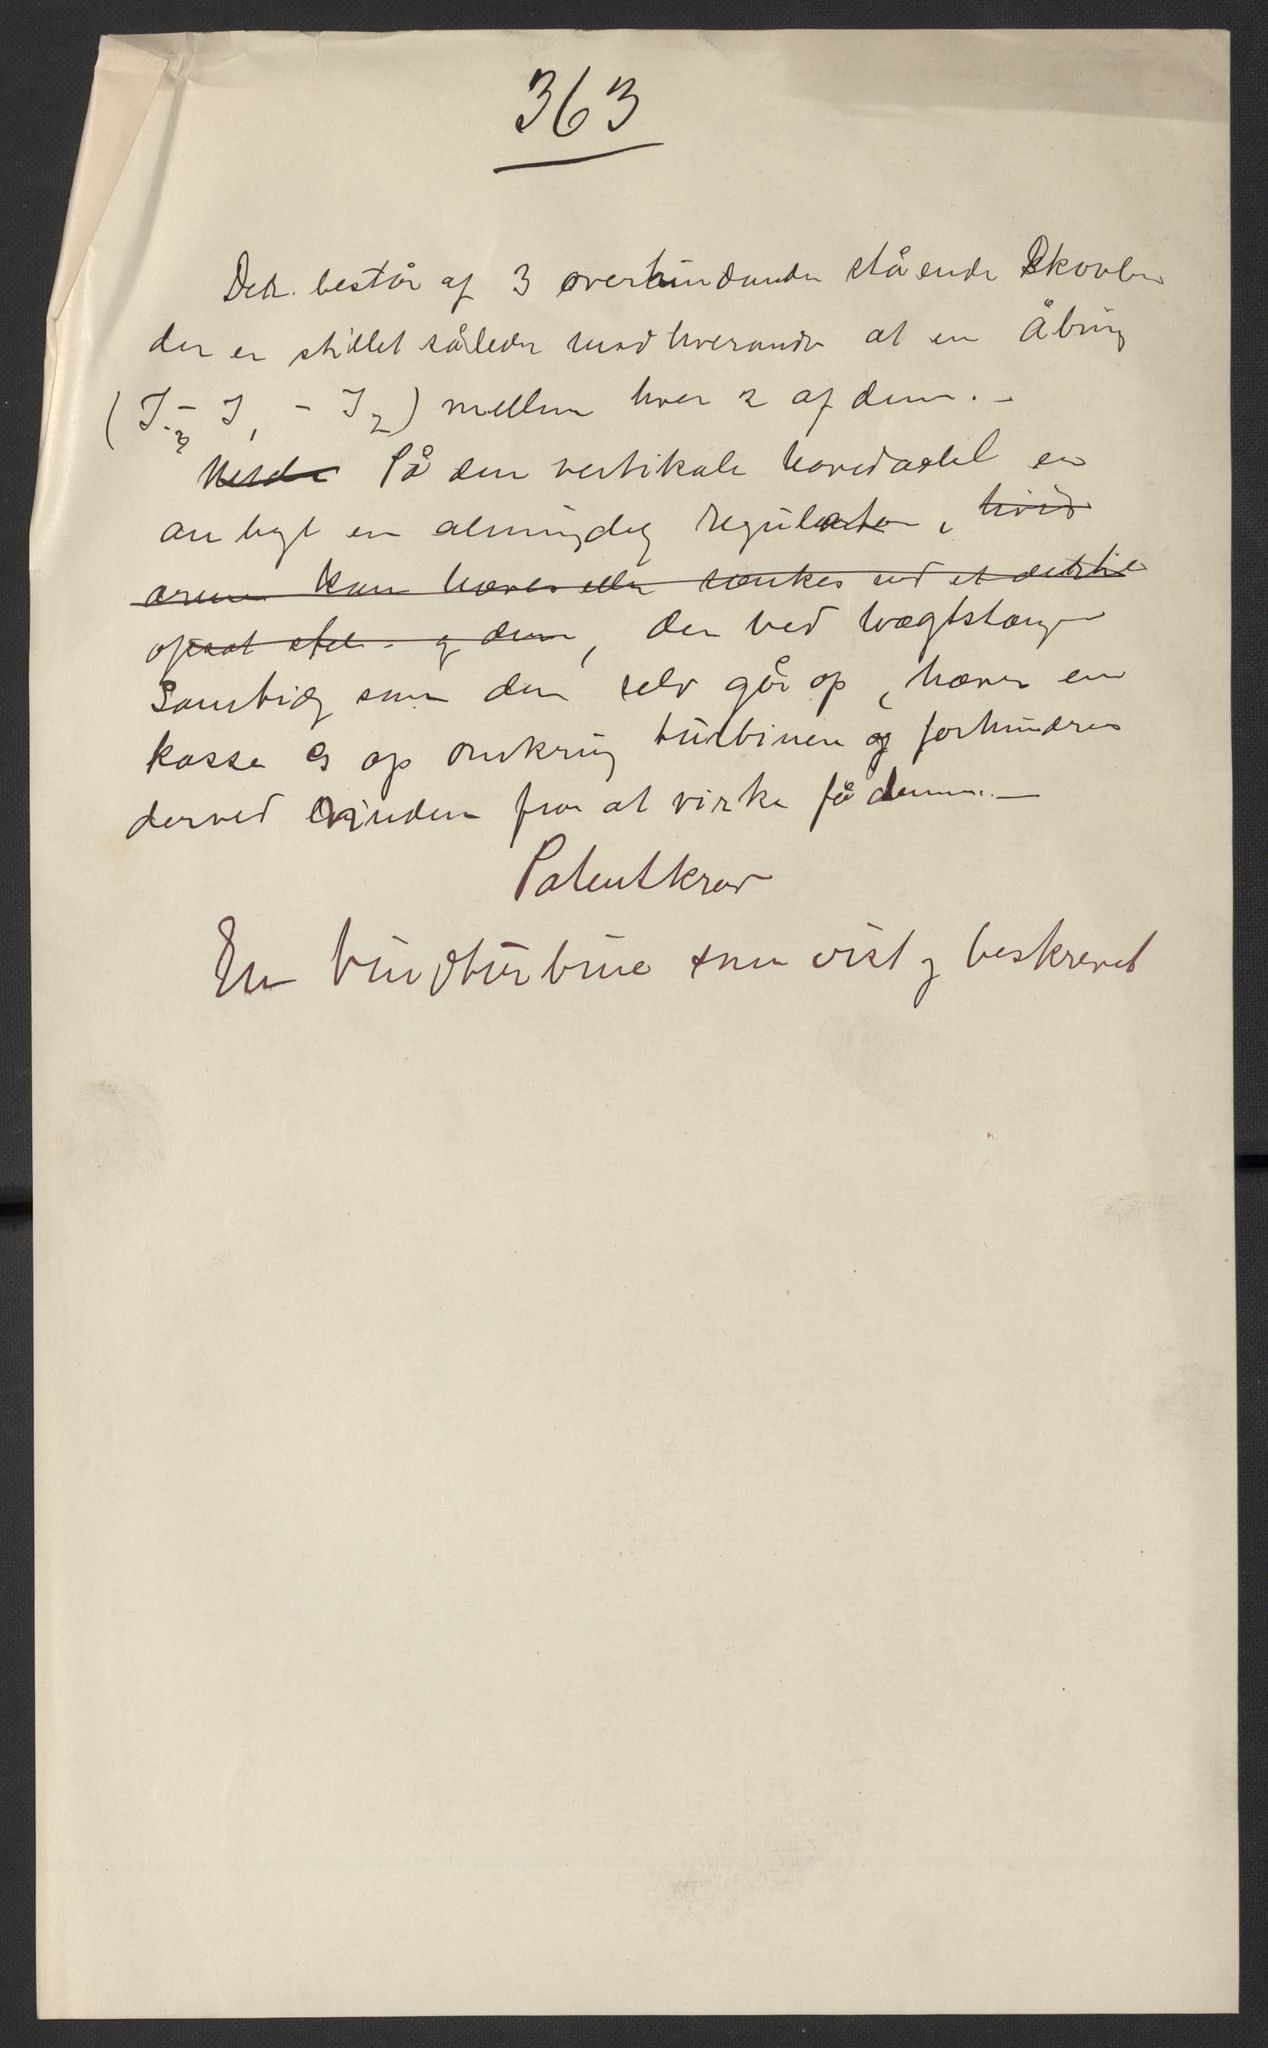 363
Det består af 3 overhinanden stående Skovler
der er stillet således mod hverandre at en Åbning
(I3 - I1 - I2) mellem hver 2 af dem. -
På den vertikale hovedaksel er
anbygt en almindelig regulator, hvis
armene kan hæves eller sænkes ved et dertil
opsat og den, der ved vægtstænger
Samtidig som den selv går op, hæver en
kasse op omkring turbinen og forhindrer
derved vinden fra at virke på denne. -
Patentkrav
En Vindturbine som vist og beskrevet